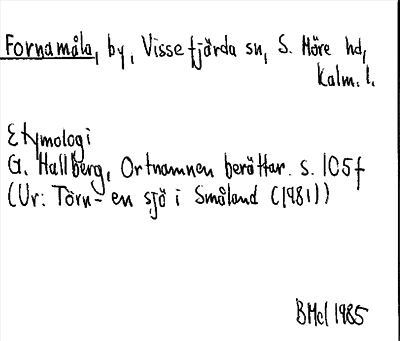 Fornamåla, by, Vissefjärda sn, S. Möre hd,
Kalm. l.
Etymologi
G. Hallberg, Ortnamnen berättar. s. 105f
(Ur: Törn- en sjö i Småland (1981))
BMcl 1985